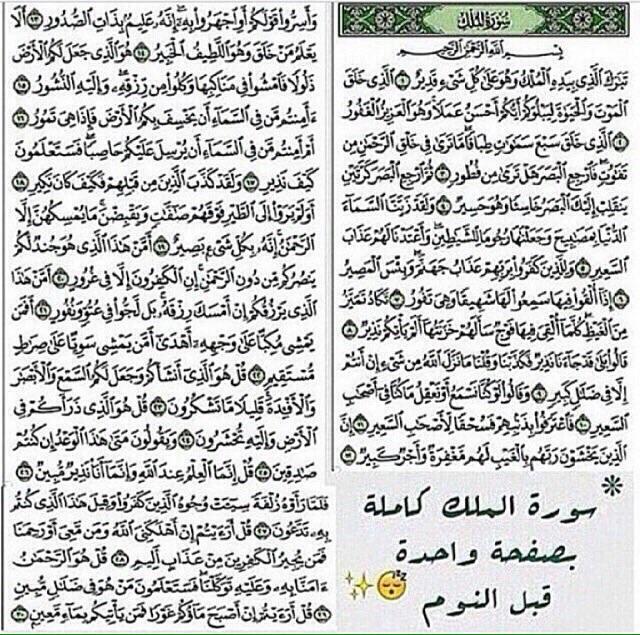 سُورَةُ المُلْكِ
بِسْمِ اللَّهِ الرَّحْمَٰنِ الرَّحِيمِ
تَبَٰرَكَ الَّذِي بِيَدِهِ الْمُلْكُ وَهُوَ عَلَىٰ كُلِّ شَيْءٍ قَدِيرٌ ١ الَّذِي خَلَقَ
الْمَوْتَ وَالْحَيَوٰةَ لِيَبْلُوَكُمْ أَيُّكُمْ أَحْسَنُ عَمَلًا وَهُوَ الْعَزِيزُ الْغَفُورُ
٢ الَّذِي خَلَقَ سَبْعَ سَمَٰوَٰتٍ طِبَاقًا مَّا تَرَىٰ فِي خَلْقِ الرَّحْمَٰنِ مِن
تَفَٰوُتٍ فَارْجِعِ الْبَصَرَ هَلْ تَرَىٰ مِن فُطُورٍ ٣ ثُمَّ ارْجِعِ الْبَصَرَ كَرَّتَيْنِ
يَنقَلِبْ إِلَيْكَ الْبَصَرُ خَاسِئًا وَهُوَ حَسِيرٌ ٤ وَلَقَدْ زَيَّنَّا السَّمَاءَ
الدُّنْيَا بِمَصَٰبِيحَ وَجَعَلْنَٰهَا رُجُومًا لِّلشَّيَٰطِينِ وَأَعْتَدْنَا لَهُمْ عَذَابَ
السَّعِيرِ ٥ وَلِلَّذِينَ كَفَرُوا بِرَبِّهِمْ عَذَابُ جَهَنَّمَ وَبِئْسَ الْمَصِيرُ
٦ إِذَا أُلْقُوا فِيهَا سَمِعُوا لَهَا شَهِيقًا وَهِيَ تَفُورُ ٧ تَكَادُ تَمَيَّزُ
مِنَ الْغَيْظِ كُلَّمَا أُلْقِيَ فِيهَا فَوْجٌ سَأَلَهُمْ خَزَنَتُهَا أَلَمْ يَأْتِكُمْ نَذِيرٌ ٨
قَالُوا بَلَىٰ قَدْ جَاءَنَا نَذِيرٌ فَكَذَّبْنَا وَقُلْنَا مَا نَزَّلَ اللَّهُ مِن شَيْءٍ إِنْ أَنتُمْ
إِلَّا فِي ضَلَٰلٍ كَبِيرٍ ٩ وَقَالُوا لَوْ كُنَّا نَسْمَعُ أَوْ نَعْقِلُ مَا كُنَّا فِي أَصْحَٰبِ
السَّعِيرِ ١٠ فَاعْتَرَفُوا بِذَنبِهِمْ فَسُحْقًا لِّأَصْحَٰبِ السَّعِيرِ ١١ إِنَّ
الَّذِينَ يَخْشَوْنَ رَبَّهُم بِالْغَيْبِ لَهُم مَّغْفِرَةٌ وَأَجْرٌ كَبِيرٌ ١٢
وَأَسِرُّوا قَوْلَكُمْ أَوِ اجْهَرُوا بِهِ إِنَّهُ عَلِيمٌ بِذَاتِ الصُّدُورِ ١٣ أَلَا
يَعْلَمُ مَنْ خَلَقَ وَهُوَ اللَّطِيفُ الْخَبِيرُ ١٤ هُوَ الَّذِي جَعَلَ لَكُمُ الْأَرْضَ
ذَلُولًا فَامْشُوا فِي مَنَاكِبِهَا وَكُلُوا مِن رِّزْقِهِ وَإِلَيْهِ النُّشُورُ ١٥
ءَأَمِنتُم مَّن فِي السَّمَاءِ أَن يَخْسِفَ بِكُمُ الْأَرْضَ فَإِذَا هِيَ تَمُورُ ١٦
أَمْ أَمِنتُم مَّن فِي السَّمَاءِ أَن يُرْسِلَ عَلَيْكُمْ حَاصِبًا فَسَتَعْلَمُونَ
كَيْفَ نَذِيرِ ١٧ وَلَقَدْ كَذَّبَ الَّذِينَ مِن قَبْلِهِمْ فَكَيْفَ كَانَ نَكِيرِ ١٨
أَوَلَمْ يَرَوْا إِلَى الطَّيْرِ فَوْقَهُمْ صَٰفَّٰتٍ وَيَقْبِضْنَ مَا يُمْسِكُهُنَّ إِلَّا
الرَّحْمَٰنُ إِنَّهُ بِكُلِّ شَيْءٍ بَصِيرٌ ١٩ أَمَّنْ هَٰذَا الَّذِي هُوَ جُندٌ لَّكُمْ
يَنصُرُكُم مِّن دُونِ الرَّحْمَٰنِ إِنِ الْكَٰفِرُونَ إِلَّا فِي غُرُورٍ ٢٠ أَمَّنْ هَٰذَا
الَّذِي يَرْزُقُكُمْ إِنْ أَمْسَكَ رِزْقَهُ بَل لَّجُّوا فِي عُتُوٍّ وَنُفُورٍ ٢١ أَفَمَن
يَمْشِي مُكِبًّا عَلَىٰ وَجْهِهِ أَهْدَىٰ أَمَّن يَمْشِي سَوِيًّا عَلَىٰ صِرَٰطٍ
مُّسْتَقِيمٍ ٢٢ قُلْ هُوَ الَّذِي أَنشَأَكُمْ وَجَعَلَ لَكُمُ السَّمْعَ وَالْأَبْصَٰرَ
وَالْأَفْـِٔدَةَ قَلِيلًا مَّا تَشْكُرُونَ ٢٣ قُلْ هُوَ الَّذِي ذَرَأَكُمْ فِي
الْأَرْضِ وَإِلَيْهِ تُحْشَرُونَ ٢٤ وَيَقُولُونَ مَتَىٰ هَٰذَا الْوَعْدُ إِن كُنتُمْ
صَٰدِقِينَ ٢٥ قُلْ إِنَّمَا الْعِلْمُ عِندَ اللَّهِ وَإِنَّمَا أَنَا نَذِيرٌ مُّبِينٌ ٢٦
فَلَمَّا رَأَوْهُ زُلْفَةً سِيـَٔتْ وُجُوهُ الَّذِينَ كَفَرُوا وَقِيلَ هَٰذَا الَّذِي كُنتُم
بِهِ تَدَّعُونَ ٢٧ قُلْ أَرَءَيْتُمْ إِنْ أَهْلَكَنِيَ اللَّهُ وَمَن مَّعِيَ أَوْ رَحِمَنَا
فَمَن يُجِيرُ الْكَٰفِرِينَ مِنْ عَذَابٍ أَلِيمٍ ٢٨ قُلْ هُوَ الرَّحْمَٰنُ
ءَامَنَّا بِهِ وَعَلَيْهِ تَوَكَّلْنَا فَسَتَعْلَمُونَ مَنْ هُوَ فِي ضَلَٰلٍ مُّبِينٍ
٢٩ قُلْ أَرَءَيْتُمْ إِنْ أَصْبَحَ مَاؤُكُمْ غَوْرًا فَمَن يَأْتِيكُم بِمَاءٍ مَّعِينٍ ٣٠
* سورة الملك كاملة
بصفحة واحدة
قبل النوم 😴✨